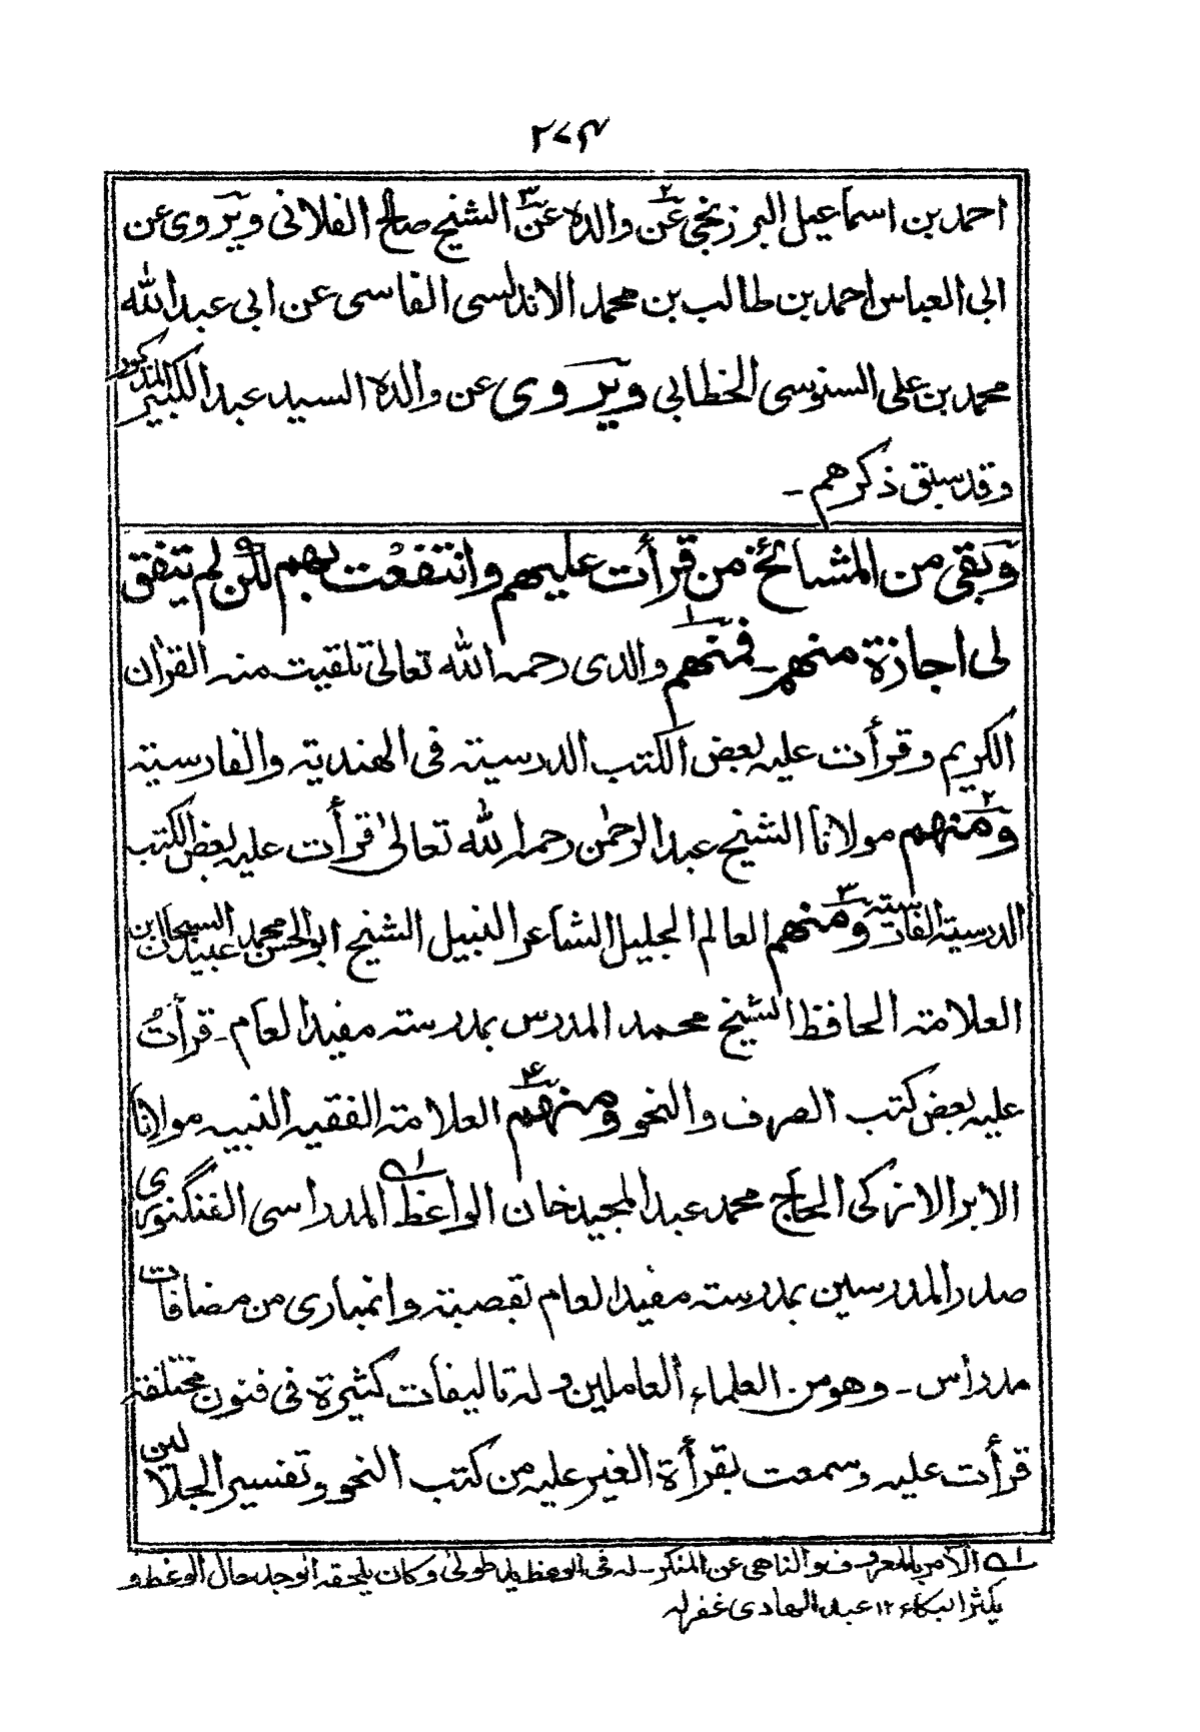 ٢٧٤
احمد بن اسماعيل البرزنجی عن٢ والده عن٣ الشيخ صالح الفلانی ويروی عن
ابی العباس احمد بن طالب بن محمد الاندلسی الفاسی عن ابی عبد الله
محمد بن علی السنوسی الخطابی ويروی عن والده السيد عبد الکبير المذکور
وقد سبق ذکرهم ـ
وبقی من المشائخ من قرأت عليهم وانتفعت بهم لکن لم يتفق
لی اجازة منهم ـ فمنهم١ والدی رحمه الله تعالیٰ تلقيت منه القراٰن
الکريم وقرأت عليه بعض الکتب الدرسية فی الهندية والفارسية
ومنهم٢ مولانا الشيخ عبد الرحمٰن رحمه الله تعالیٰ قرأت عليه بعض الکتب
الدرسية الفارسية ومنهم٣ العالم الجليل الشاعر النبيل الشيخ ابو الحسن محمد
العلامة الحافظ الشيخ محمد المدرس بمدرسة مفيد العام ـ قرأتُ
عليه بعض کتب الصرف والنحو ومنهم٤ العلامة الفقيه النبيه مولانا
الابر الازکی الحاج محمد عبد المجيد خان الواعظ١ المدراسی الفنگنوری
صدر المدرسين بمدرسة مفيد العام بقصبة وانمباری من مضافات
مدراس ـ وهو من العلماء العاملين وله تاليفات کثيرة فی فنون مختلفة
قرأت عليه وسمعت بقرأة الغير عليه من کتب النحو وتفسير الجلالين
١ـ الآمر بالمعروف والناهی عن المنکر ـ له فی الوعظ يد طولیٰ وکان يلحقه الوجد حال الوعظ و
يکثر البکاء ١٢ عبد الهادی غفرله